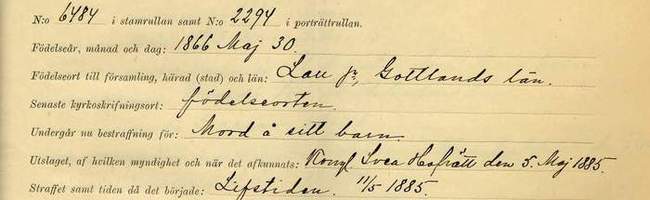 N:o 6484 i stamrullan samt N:o 2294 i porträttrullan.
Födelseår, månad och dag: 1866 Maj 30.
Födelseort till församling, härad (stad) och län: Lau fg, Gottlands län.
Senaste kyrkoskrifningsort: födelseorten.
Undergår nu bestraffning för: Mord å sitt barn.
Utslaget, af hvilken myndighet och när det afkunnats: Kongl. Svea Hofrätt den 5. Maj 1885.
Straffet samt tiden då det började: Lifstiden. 11/5 1885.